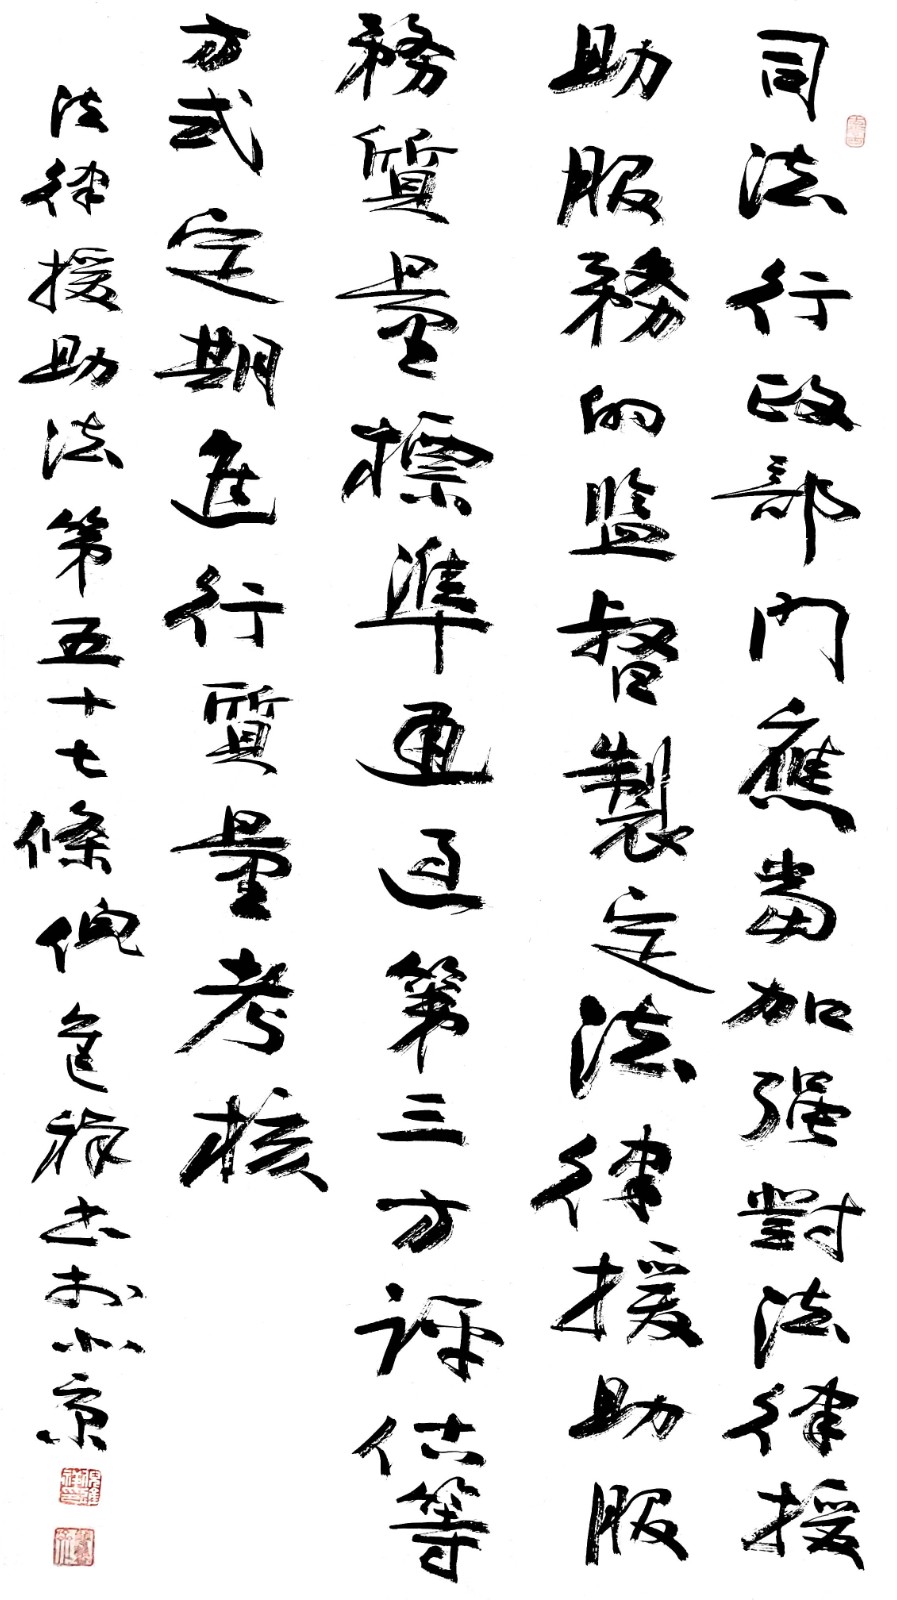 司法行政部門應當加强對法律援
助服務的监督製定法律援助服
務質量標準通过第三方評估等
方式定期進行質量考核
法律援助法第五十七條倪進祥书於北京